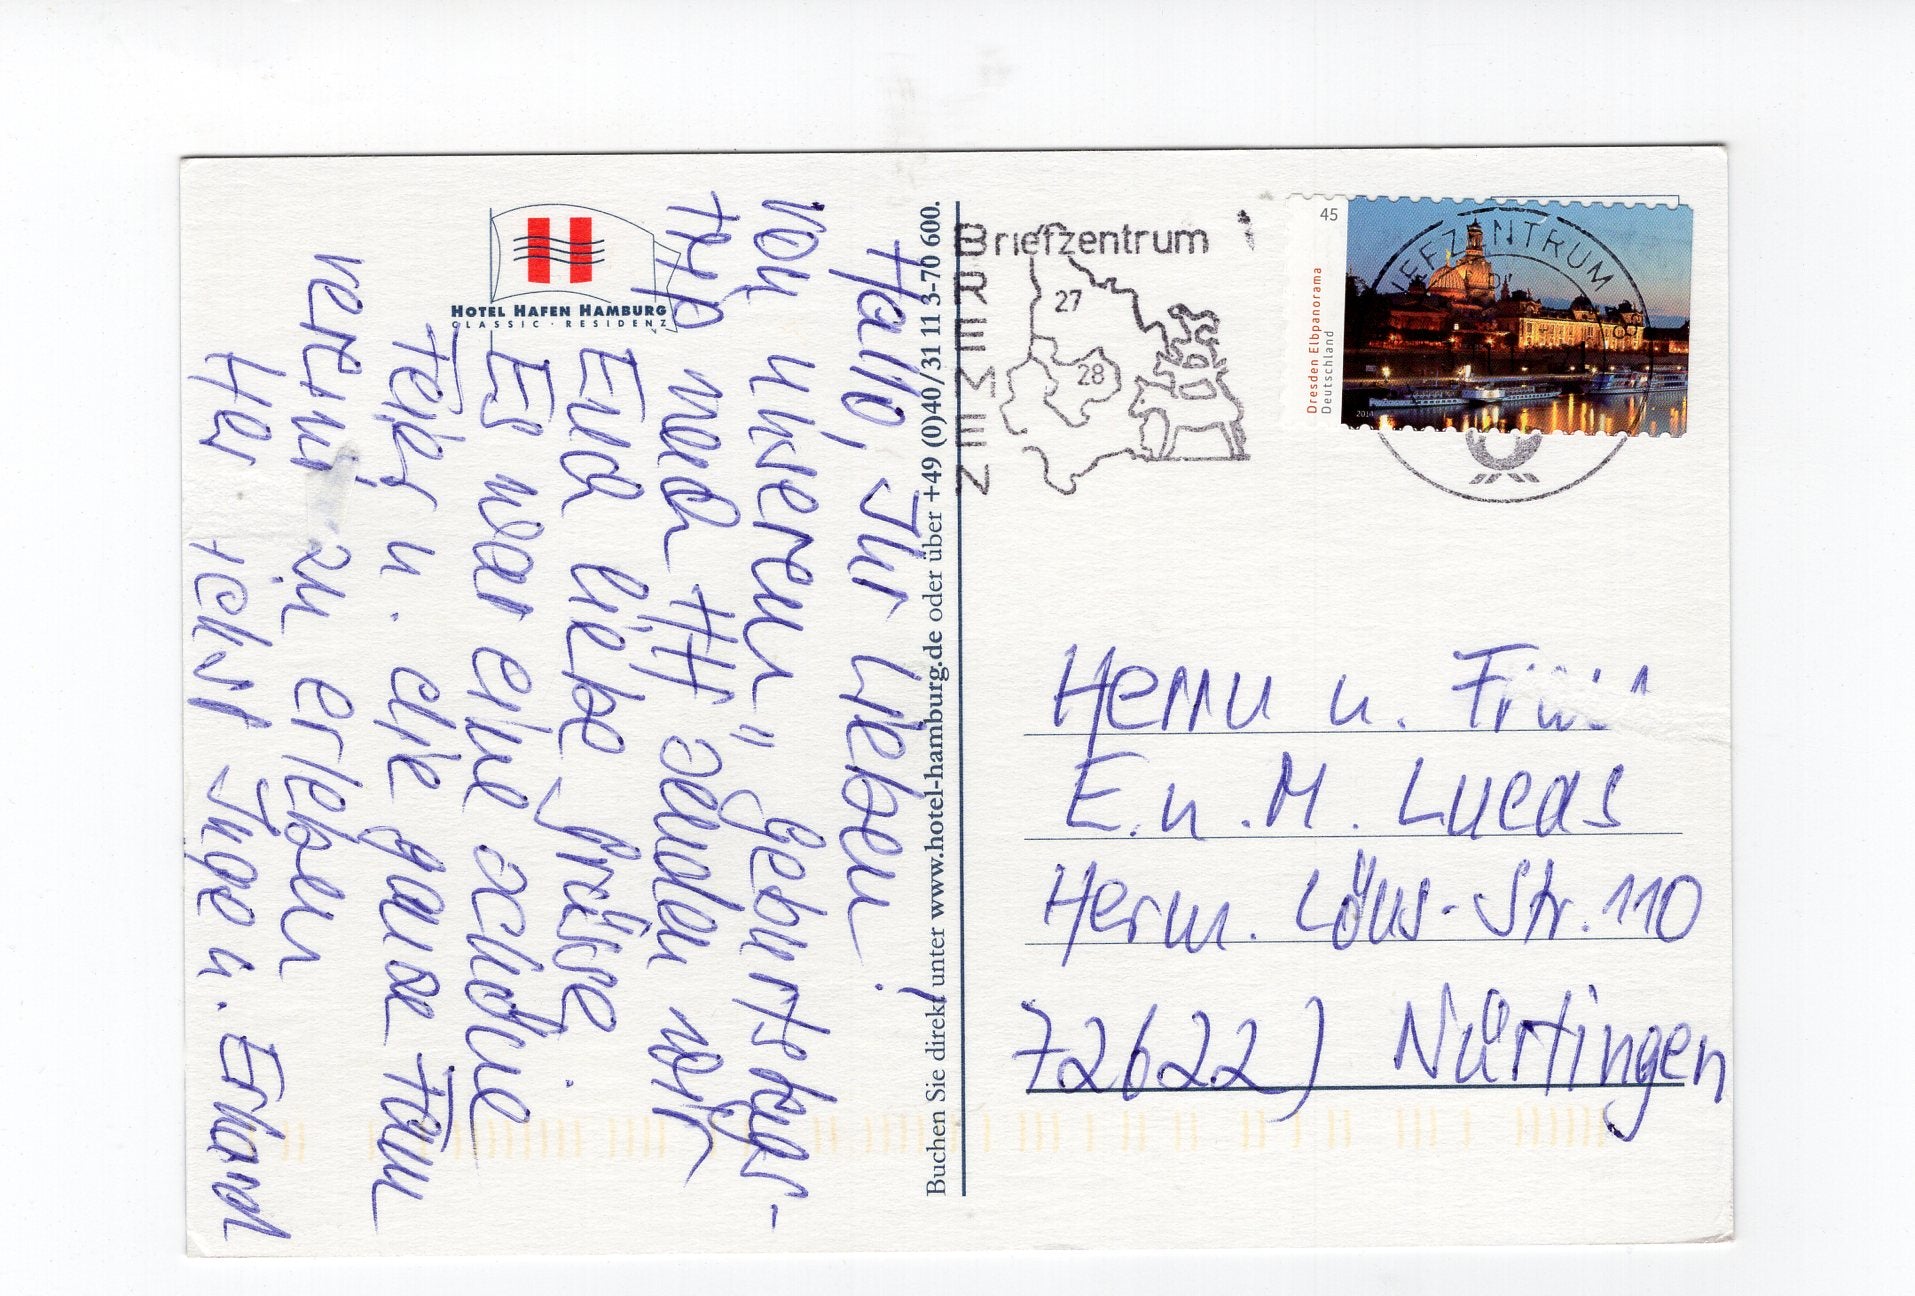 HOTEL HAFEN HAMBURG
CLASSIC · RESIDENZ
Hallo, Ihr Lieben!
Von unserem "Geburtstags-
trip nach HH senden wir
Euch liebe Grüsse.
Es war eine schöne
Feier u. die ganze Fam
vereint zu erleben
Her Inge u. Erhard
Buchen Sie direkt unter www.hotel-hamburg.de oder über +49 (0)40/31 11 3-70 600.
Briefzentrum
BREMEN
27
28
45
Dresden Elbpanorama
Deutschland
2014
BRIEFZENTRUM
Herrn u. Frau
E. u. M. Lucas
Herm. Löns-Str. 110
72622) Nürtingen